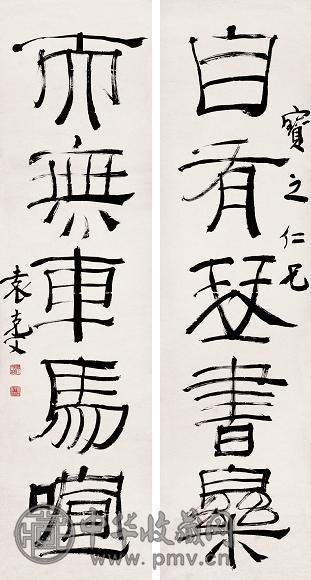 寶之仁兄
自有琴書樂
而無車馬喧
袁克文
中华收藏网
www.pmv.cn